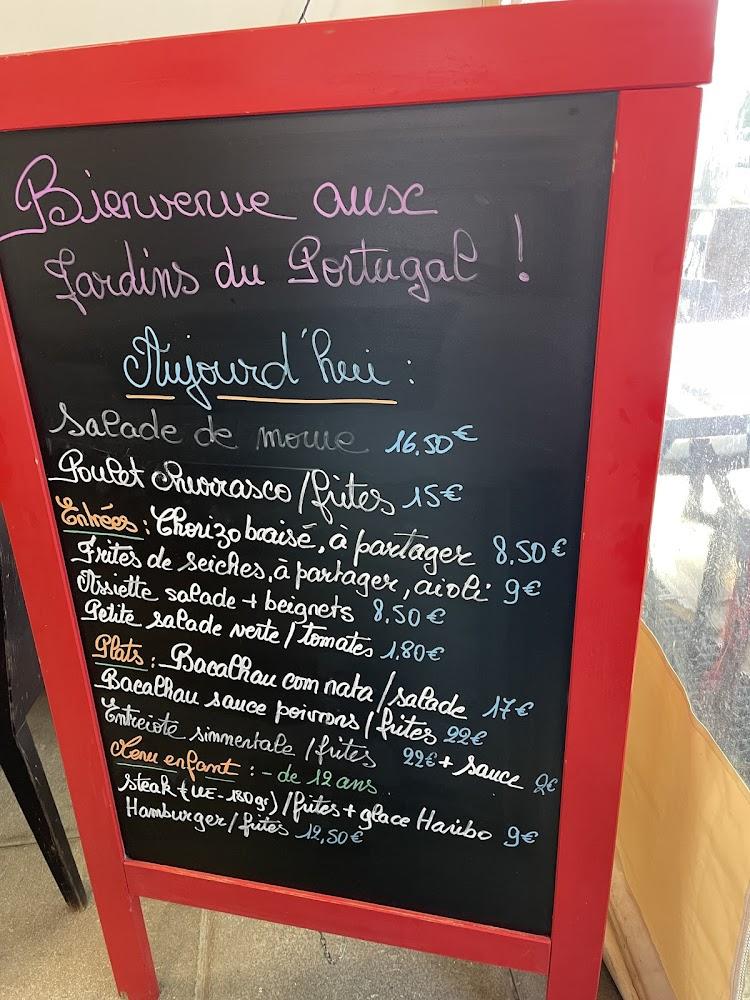 Bienvenue aux
Jardins du Portugal !
Aujourd'hui :
Salade de morue 16,50€
Poulet Churrasco / frites 15€
Entrées : Chorizo braisé, à partager 8,50€
Frites de seiches, à partager, aioli 9€
Assiette salade + beignets 8,50€
Petite salade verte / tomates 1,80€
Plats : Bacalhau com nata / salade 17€
Bacalhau sauce poivrons / frites 22€
Entrecôte simmentale / frites 22€ + sauce 2€
Menu enfant : - de 12 ans
Steak (UE - 180 gr) / frites + glace Haribo 9€
Hamburger / frites 12,50€